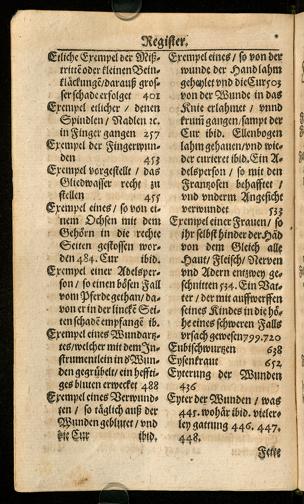 Register.
Etliche Exempel der Miß-
tritte oder kleinen Bein-
klückungē/darauß gros-
ser schade erfolget 401
Exempel etlicher / denen
Spindlen / Nadlen ꝛc.
in Finger gangen 257
Exempel der Fingerwun-
den 453
Exempel vorgestellt / das
Gliedwasser recht zu
stellen 455
Exempel eines / so von ei-
nem Ochsen mit dem
Gehörn in die rechte
Seiten gestossen wor-
den 484. Cur ibid.
Exempel einer Adelsper-
son / so einen bösen Fall
vom Pferde gethan / da-
von er in der linckē Sei-
ten schadē empfangē ib.
Exempel eines Wundartz-
tes/welcher mit dem In-
strumentlein in d'Wun-
den gegrübelt / ein heffti-
ges bluten erwecket 488
Exempel eines Verwund-
ten / so täglich auß der
Wunden geblutet / und
die Cur ibid.
Exempel eines / so von der
wunde der Hand lahm
geheylet vnd die Cur 503
von der Wunde in das
Knie erlahmet / vnnd
krum gangen/sampt der
Cur ibid. Ellenbogen
lahm gehauen/vnd wie-
der curieret ibid. Ein A-
delsperson / so mit den
Frantzosen behafftet /
vnd vnderm Angesicht
verwundet 533
Exempel einer Frauen / so
ihr selbst hinder der Häd
von dem Gleich alle
Haut / Fleisch / Nerven
vnd Adern entzwey ge-
schnitten 534. Ein Vat-
ter / der mit auffwerffen
seines Kindes in die hö-
he eines schweren Falls
vrsach gewesen 799.720
Eubischwurtzen 638
Eysenkraut 652
Eyterung der Wunden
436
Eyter der Wunden / was
445. wohär ibid. vieler-
ley gattung 446. 447.
448.
Fette